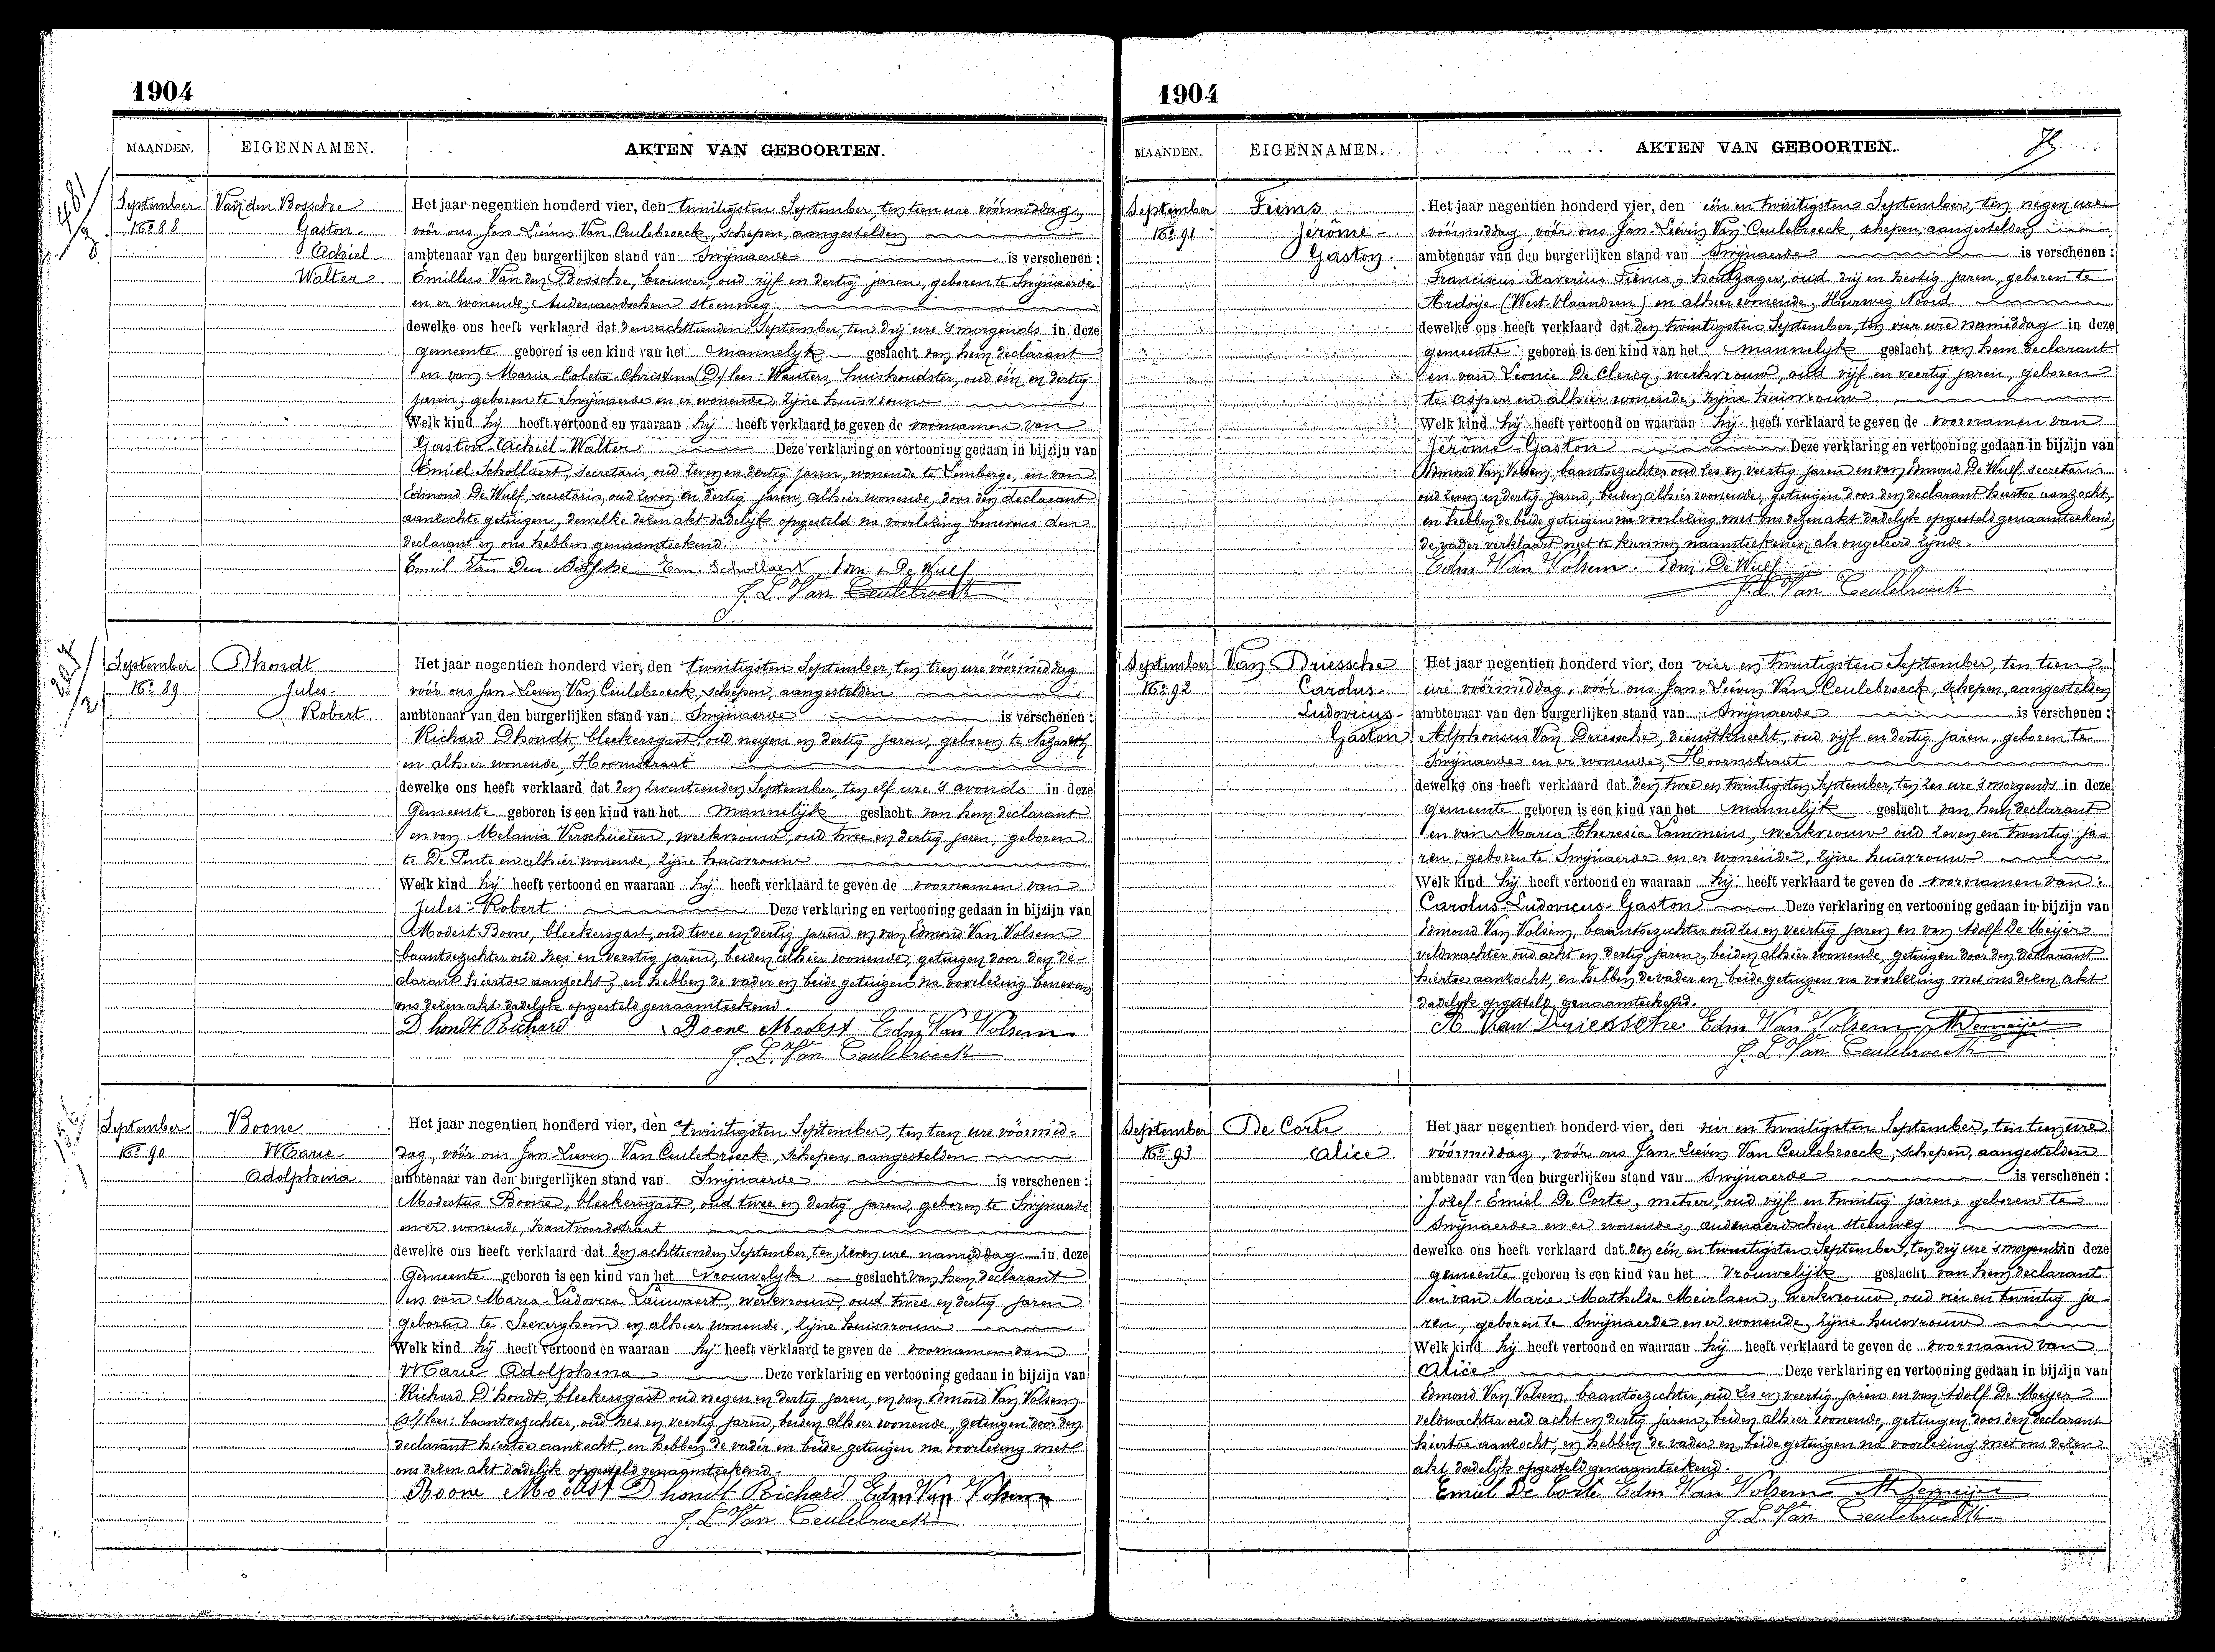 1904
MAANDEN. EIGENNAMEN. AKTEN VAN GEBOORTEN.
481/3
September Van den Bossche
No 88 Gaston-
Achiel-
Walter.
Het jaar negentien honderd vier, den twintigsten September, ten tien ure vóórmiddag,
vóór ons Jan-Lievin Van Ceulebroeck, schepen, aangestelden
ambtenaar van den burgerlijken stand van Swijnaerde is verschenen:
Emillus Van den Bossche, brouwer, oud vijf en dertig jaren, geboren te Swijnaerde
en er wonende, Audenaerdschen steenweg
dewelke ons heeft verklaard dat den achttienden September, ten drij ure 's morgends in deze
gemeente geboren is een kind van het mannelijk geslacht van hem declarant
en van Maria-Coleta-Christina (D/ lees: Wauters, huishoudster, oud één en dertig
jaren, geboren te Swijnaerde en er wonende, zijne huisvrouw
Welk kind hij heeft vertoond en waaraan hij heeft verklaard te geven de voornamen van
Gaston-Achiel-Walter. Deze verklaring en vertooning gedaan in bijzijn van
Emiel Schollaert, secretaris, oud zeven en dertig jaren, wonende te Lemberge, en van
Edmond De Wulf, secretaris, oud zeven en dertig jaren, alhier wonende, door den declarant
aanzochte getuigen, dewelke dezen akt dadelijk opgesteld na voorlezing benevens den
declarant en ons hebben genaamteekend.
Emiel Van Den Bossche Em. Schollaert Edm. De Wulf
J. L. Van Ceulebroeck
September Dhondt
No 89 Jules-
Robert.
Het jaar negentien honderd vier, den twintigsten September, ten tien ure vóórmiddag
vóór ons Jan-Lievin Van Ceulebroeck, schepen, aangestelden
ambtenaar van den burgerlijken stand van Swijnaerde is verschenen:
Richard Dhondt, bleekersgast, oud negen en dertig jaren, geboren te Nazareth
en alhier wonende, Hoornstraat
dewelke ons heeft verklaard dat den zeventienden September, ten elf ure 's avonds in deze
Gemeente geboren is een kind van het mannelijk geslacht van hem declarant
en van Melania Verschueren, werkvrouw, oud twee en dertig jaren, geboren
te De Pinte en alhier wonende, zijne huisvrouw
Welk kind hij heeft vertoond en waaraan hij heeft verklaard te geven de voornamen van
Jules-Robert Deze verklaring en vertooning gedaan in bijzijn van
Modest Boone, bleekersgast, oud twee en dertig jaren en van Edmond Van Volsem
baantoezichter oud zes en veertig jaren, beiden alhier wonende, getuigen door den de-
clarant hiertoe aanzocht, en hebben de vader en beide getuigen na voorlezing benevens
ons dezen akt dadelijk opgesteld genaamteekend
D hondt Richard Boone Modest Edm Van Volsem
J. L. Van Ceulebroeck
September Boone
No 90 Marie-
Adolphina
Het jaar negentien honderd vier, den twintigsten September, ten tien ure vóórmid-
dag, vóór ons Jan-Lievin Van Ceulebroeck, schepen, aangestelden
ambtenaar van den burgerlijken stand van Swijnaerde is verschenen:
Modestus Boone, bleekersgast, oud twee en dertig jaren, geboren te Swijnaerde
en er wonende, Zantvoordstraat
dewelke ons heeft verklaard dat den achttienden September, ten zeven ure namiddag in deze
Gemeente geboren is een kind van het vrouwelijk geslacht van hem declarant
en van Maria-Ludovica Lauwaert, werkvrouw, oud twee en dertig jaren
geboren te Seevergem en alhier wonende, zijne huisvrouw
Welk kind hij heeft vertoond en waaraan hij heeft verklaard te geven de voornamen van
Marie Adolphina Deze verklaring en vertooning gedaan in bijzijn van
Richard D'hondt, bleekersgast oud negen en dertig jaren, en van Edmond Van Volsem
(s/ lees: baantoezichter, oud zes en veertig jaren, beiden alhier wonende, getuigen door den
declarant hiertoe aanzocht, en hebben de vader en beide getuigen na voorlezing met
ons dezen akt dadelijk opgesteld genaamteekend.
Boone Modest D hondt Richard Edm Van Volsem
J. L. Van Ceulebroeck
1904
MAANDEN. EIGENNAMEN. AKTEN VAN GEBOORTEN.
September Fiems
No 91 Jérôme-
Gaston.
Het jaar negentien honderd vier, den één en twintigsten September, ten negen ure
vóórmiddag vóór ons Jan-Lievin Van Ceulebroeck, schepen, aangestelden
ambtenaar van den burgerlijken stand van Swijnaerde is verschenen:
Franciscus-Xaverius Fiems, houtzager, oud drij en zestig jaren, geboren te
Ardoije (West-Vlaandren) en alhier wonende, Heerweg Noord
dewelke ons heeft verklaard dat den twintigsten September, ten vier ure namiddag in deze
gemeente geboren is een kind van het mannelijk geslacht van hem declarant
en van Leonie De Clercq, werkvrouw, oud vijf en veertig jaren, geboren
te Asper en alhier wonende, zijne huisvrouw
Welk kind hij heeft vertoond en waaraan hij heeft verklaard te geven de voornamen van
Jérôme-Gaston Deze verklaring en vertooning gedaan in bijzijn van
Edmond Van Volsem, baantoezichter oud zes en veertig jaren en van Edmond De Wulf, secretaris
oud zeven en dertig jaren, beiden alhier wonende, getuigen door den declarant hiertoe aanzocht,
en hebben de beide getuigen na voorlezing met ons dezen akt dadelijk opgesteld genaamteekend,
de vader verklaart niet te kunnen naamteekenen, als ongeleerd zijnde.
Edm Van Volsem. Edm. De Wulf
J. L. Van Ceulebroeck
September Van Driessche
No 92 Carolus-
Ludovicus-
Gaston
Het jaar negentien honderd vier, den vier en twintigsten September, ten tien
ure vóórmiddag, vóór ons Jan-Lievin Van Ceulebroeck, schepen, aangestelden
ambtenaar van den burgerlijken stand van Swijnaerde is verschenen:
Alphonsus Van Driessche, dienstknecht, oud vijf en dertig jaren, geboren te
Swijnaerde en er wonende, Hoornstraat
dewelke ons heeft verklaard dat den twee en twintigsten September, ten zes ure 's morgends in deze
gemeente geboren is een kind van het mannelijk geslacht van hem declarant
en van Maria-Theresia Lammens, werkvrouw oud zeven en twintig ja-
ren, geboren te Swijnaerde en er wonende, zijne huisvrouw
Welk kind hij heeft vertoond en waaraan hij heeft verklaard te geven de voornamen van:
Carolus-Ludovicus-Gaston Deze verklaring en vertooning gedaan in bijzijn van
Edmond Van Volsem, baantoezichter oud zes en veertig jaren en van Adolf De Meijer
veldwachter oud acht en dertig jaren, beiden alhier wonende, getuigen door den declarant
hiertoe aanzocht, en hebben de vader en beide getuigen na voorlezing met ons dezen akt
dadelijk opgesteld genaamteekend.
Van Driessche Edm Van Volsem Demeijer
J. L. Van Ceulebroeck
September De Corte
No 93 Alice.
Het jaar negentien honderd vier, den vier en twintigsten September, ten tien ure
vóórmiddag, vóór ons Jan-Lievin Van Ceulebroeck, schepen, aangestelden
ambtenaar van den burgerlijken stand van Swijnaerde is verschenen:
Jozef-Emiel De Corte, metser, oud vijf en twintig jaren, geboren te
Swijnaerde en er wonende, audenaerdschen steenweg
dewelke ons heeft verklaard dat den één en twintigsten September, ten drij ure 's morgends in deze
gemeente geboren is een kind van het vrouwelijk geslacht van hem declarant
en van Marie-Mathilde Meirlaen, werkvrouw, oud vier en twintig ja-
ren, geboren te Swijnaerde en er wonende, zijne huisvrouw
Welk kind hij heeft vertoond en waaraan hij heeft verklaard te geven de voornaam van
Alice Deze verklaring en vertooning gedaan in bijzijn van
Edmond Van Volsem, baantoezichter, oud zes en veertig jaren en van Adolf De Meyer
veldwachter oud acht en dertig jaren, beiden alhier wonende, getuigen door den declarant
hiertoe aanzocht, en hebben de vader en beide getuigen na voorlezing met ons dezen
akt dadelijk opgesteld genaamteekend.
Emiel De Corte Edm Van Volsem Demeijer
J. L. Van Ceulebroeck